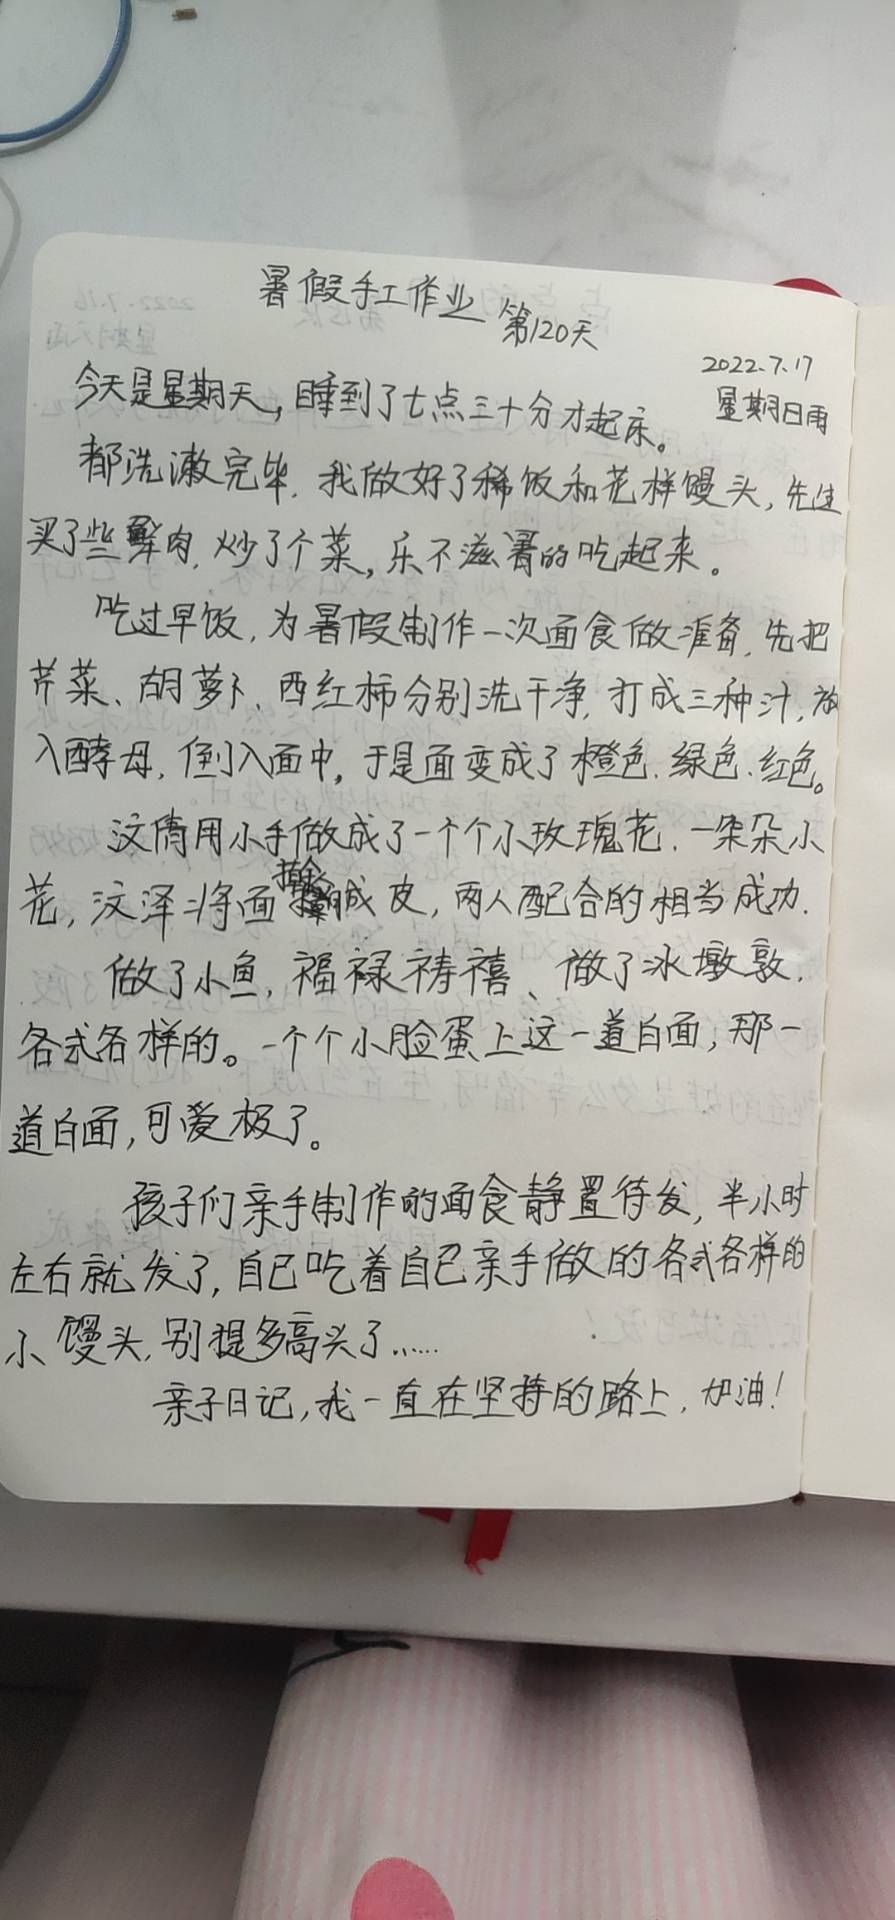 暑假手工作业 第120天
2022.7.17
星期日雨
今天是星期天，睡到了七点三十分才起床。
都洗漱完毕，我做好了稀饭和花样馒头，先生
买了些鲜肉，炒了个菜，乐不滋署的吃起来。
吃过早饭，为暑假制作一次面食做准备，先把
芹菜、胡萝卜、西红柿分别洗干净，打成三种汁，放
入酵母，倒入面中，于是面变成了橙色、绿色、红色。
汶倩用小手做成了一个个小玫瑰花，一朵朵小
花，汶泽将面成皮，两人配合的相当成功.
做了小鱼，福禄祷禧、做了冰墩敦，
各式各样的。一个个小脸蛋上这一道白面，那一
道白面，可爱极了。
孩子们亲手制作的面食静置待发，半小时
左右就发了，自己吃着自己亲手做的各式各样的
小馒头，别提多高头了……
亲子日记，我一直在坚持的路上，加油！